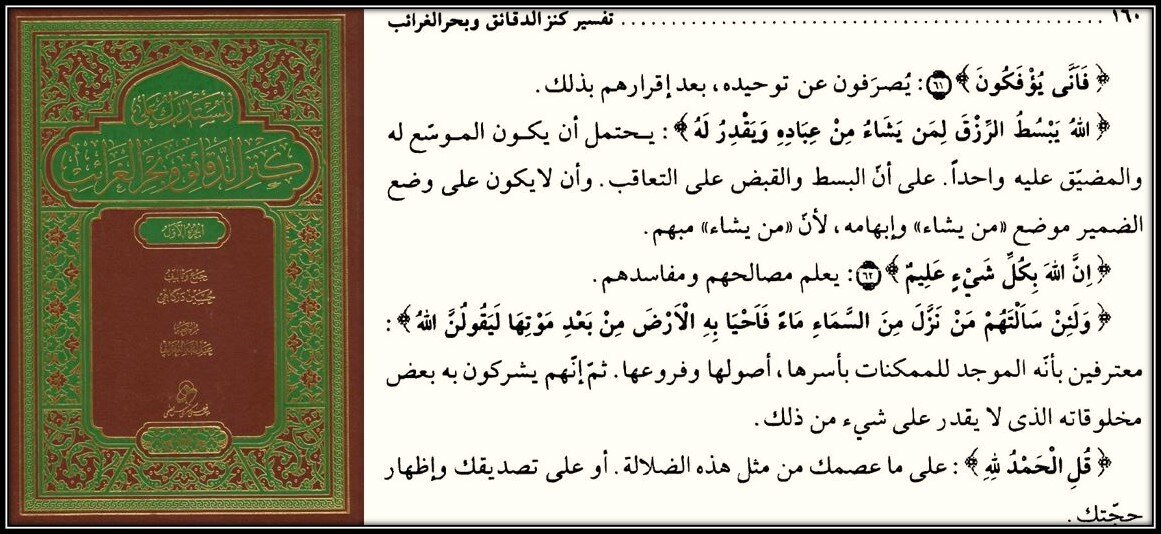 المستدرك على
كنز الدقائق وبحر الغرائب
الجزء الأول
جمع وتأليف
حسين درگاهي
١٦٠ ................ تفسير كنز الدقائق وبحر الغرائب
﴿ فَاَنَّى يُؤْفَكُونَ ﴾ ٦١: يُصرَفون عن توحيده، بعد إقرارهم بذلك.
﴿ اللهُ يَبْسُطُ الرِّزْقَ لِمَن يَشَاءُ مِنْ عِبَادِهِ وَيَقْدِرُ لَهُ ﴾: يحتمل أن يكون الموسّع له
والمضيّق عليه واحداً. على أنّ البسط والقبض على التعاقب. وأن لايكون على وضع
الضمير موضع «من يشاء» وإبهامه، لأنّ «من يشاء» مبهم.
﴿ اِنَّ اللهَ بِكُلِّ شَيْءٍ عَلِيمٌ ﴾ ٦٢: يعلم مصالحهم ومفاسدهم.
﴿ وَلَئِنْ سَاَلْتَهُمْ مَنْ نَزَّلَ مِنَ السَّمَاءِ مَاءً فَاَحْيَا بِهِ الْاَرْضَ مِنْ بَعْدِ مَوْتِهَا لَيَقُولُنَّ اللهُ ﴾:
معترفين بأنّه الموجد للممكنات بأسرها، أصولها وفروعها. ثمّ إنّهم يشركون به بعض
مخلوقاته الذى لا يقدر على شيء من ذلك.
﴿ قُلِ الْحَمْدُ لِلهِ ﴾: على ما عصمك من مثل هذه الضلالة. أو على تصديقك وإظهار
حجّتك.